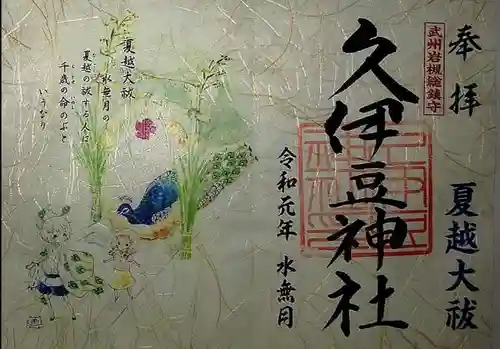 奉拝
夏越大祓
武州岩槻総鎮守
久伊豆神社
令和元年 水無月
夏越大祓
水無月の
夏越の祓する人に
千歳の命のぶと
いうなり